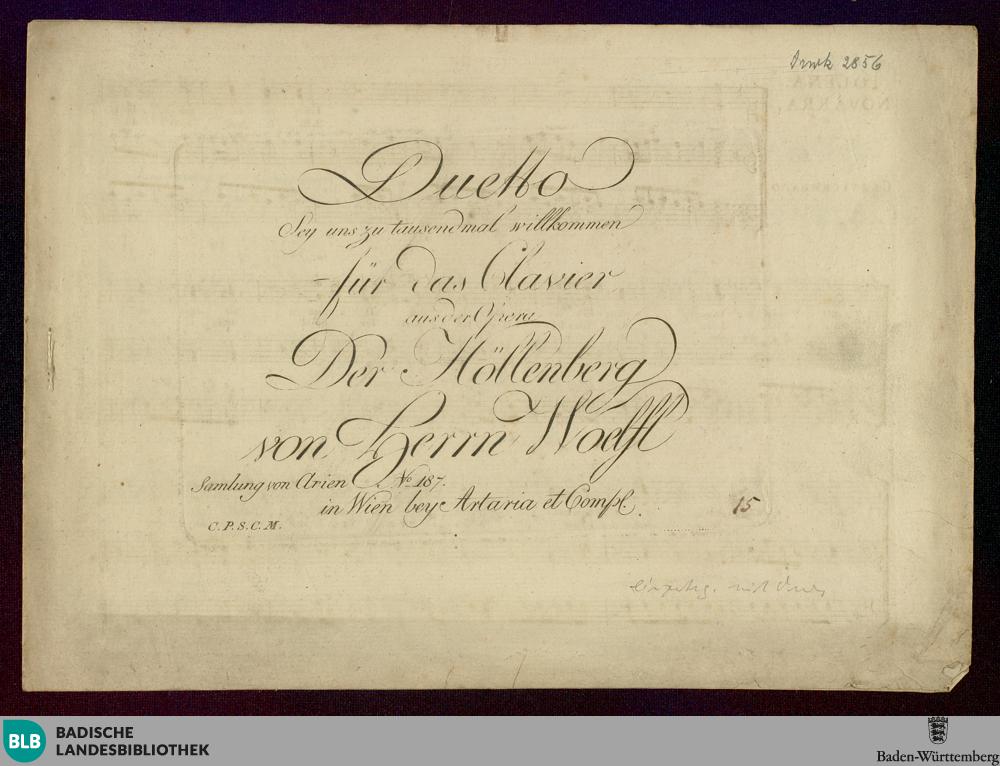 Druck 2856
Duetto
Sey uns zu tausendmal willkommen
für das Clavier
aus der Opera
Der Höllenberg
von Herrn Woelfl
Samlung von Arien No. 187.
in Wien bey Artaria et Comp.
C. P. S. C. M.
15
BLB
BADISCHE
LANDESBIBLIOTHEK
Baden-Württemberg